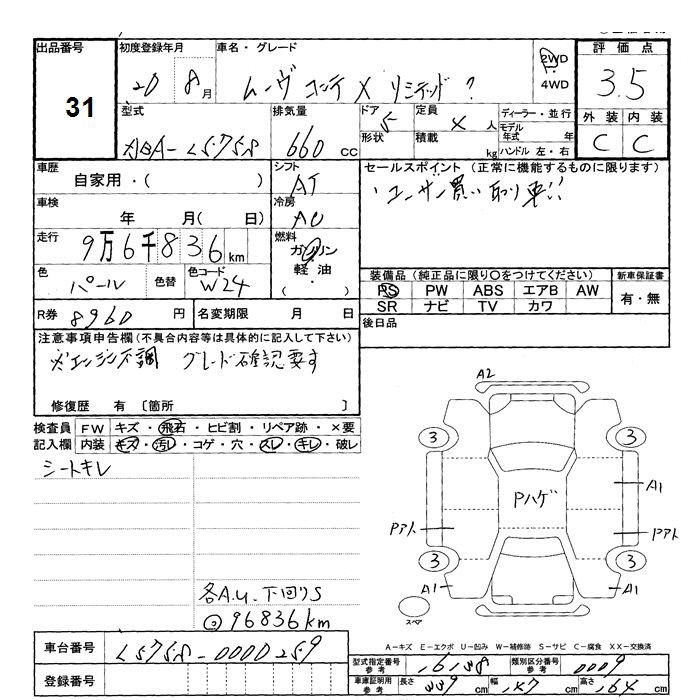 出品番号 初度登録年月 車名・グレード 2WD 評価点
31 20 8月 ムーヴ コンテ X リミテッド? 4WD 3.5
型式 排気量 ドア 5 定員 4 人 ディーラー・並行 外装 内装
DBA-L575S 660 cc 形状 積載 kg モデル年式 年 C C
ハンドル 左・右
車歴 シフト セールスポイント (正常に機能するものに限ります)
自家用・( ) AT ・ユーザー買い取り車!!
車検 冷房
年 月( 日) AC
走行 燃料
9万6千836km ガソリン
軽油
・( )
色 色替 色コード 装備品 (純正品に限り○をつけてください) 新車保証書
パール W24 PS PW ABS エアB AW 有・無
SR ナビ TV カワ
R券 8960 円 名変期限 月 日 後日品
注意事項申告欄 (不具合内容等は具体的に記入して下さい)
※エンジン不調 グレード確認要す
修復歴 有 〔箇所 〕
検査員 FW キズ・飛石・ヒビ割・リペア跡・×要
記入欄 内装 キズ・汚レ・コゲ・穴・スレ・キレ・破レ
シートキレ
A2
3 3
A1
Pハゲ
Pアト Pアト
3 3
A1 A1
スペア
各A.U.下回りS
◎96836km
A-キズ E-エクボ U-凹み W-補修跡 S-サビ C-腐食 XX-交換済
車台番号 L575S-0000259
登録番号
型式指定番号 参考 16138 類別区分番号 参考 0009
車庫証明用 参考 長さ 339 cm 幅 147 cm 高さ 164 cm